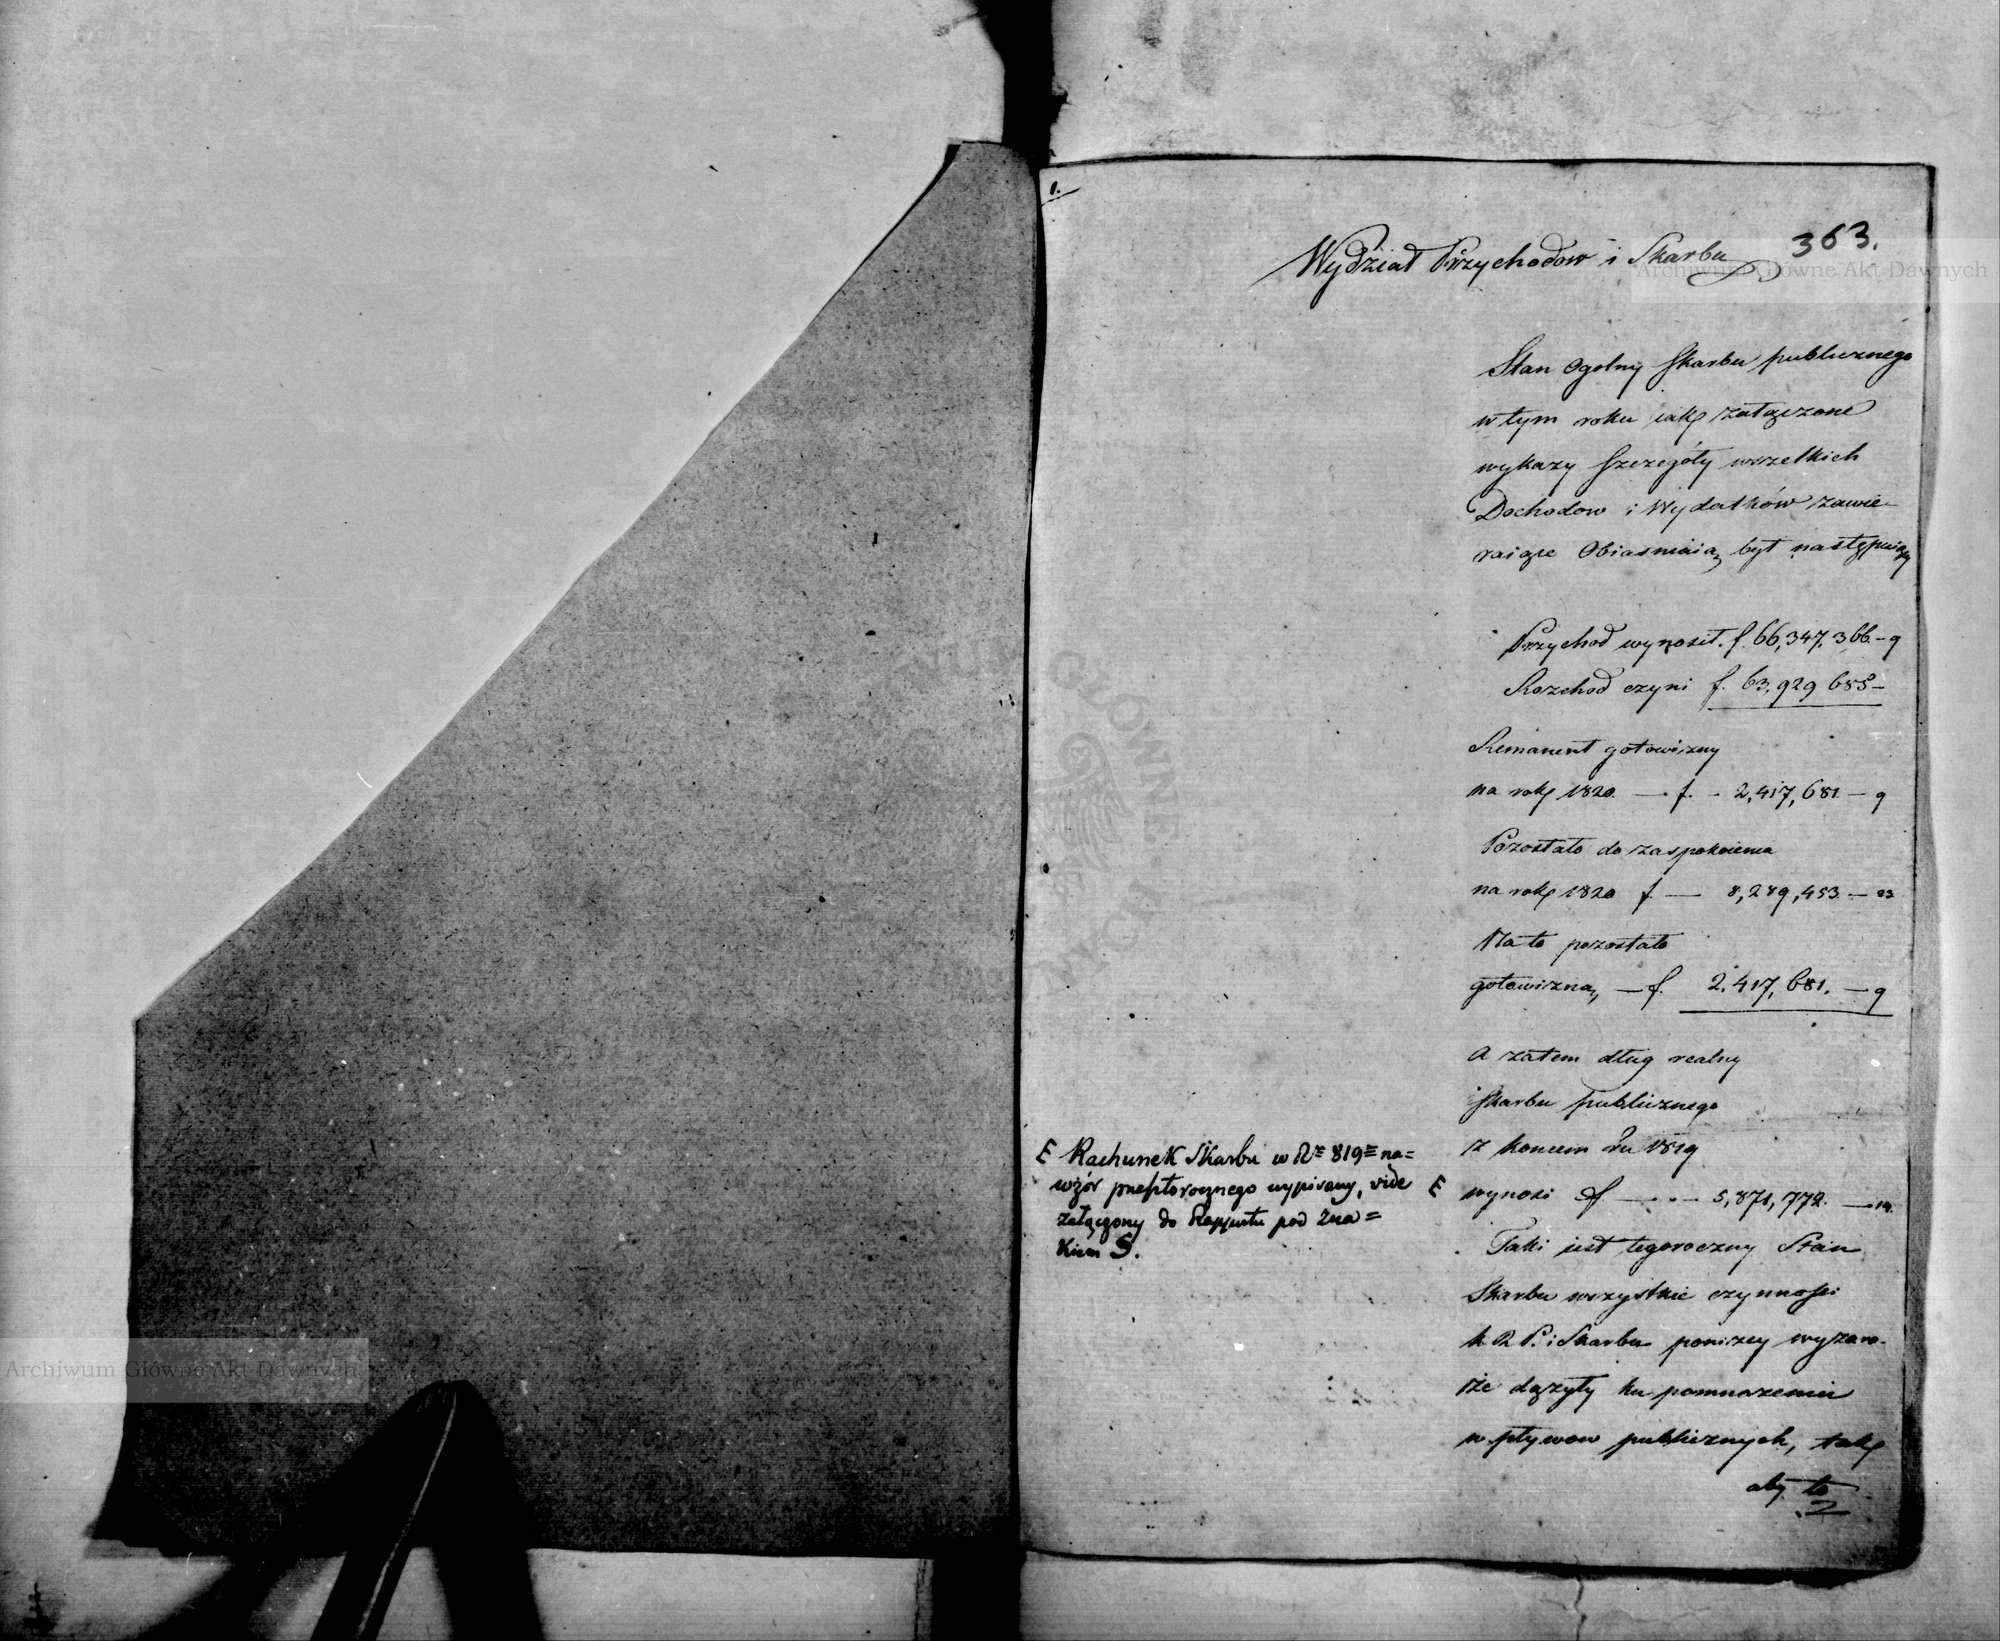 1.
363.
Wydział Przychodow i Skarbu
Archiwum Główne Akt Dawnych
Stan Ogolny Skarbu publicznego
w tym roku iak załączone
wykazy szczegóły wszelkich
Dochodow i Wydatków zawie-
raiące Obiasniaią był następuiący
Przychod wynosił. f. 66,347,366.- 9
Rozchod czyni f. 63,929 685-
Remanent gotowizny
na rok 1820. — . f. - 2,417,681. — 9
Pozostało do zaspokoienia
na rok 1820 f. — 8,289,453. — 23
Na to pozostało
gotowizną — f. 2,417,681. — 9
A zatem dług realny
Skarbu publicznego
z końcem Ru 1819
E wynosi f — . . — 5,871,772. — 14.
E Rachunek Skarbu w Rze 819m na=
wzór przeszłorocznego wypisany, vide
załączony do Rapportu pod Zna=
kiem S.
Taki iest tegoroczny Stan
Skarbu wszystkie czynności
K R P. i Skarbu ponizey wyzaro-
że dążyły ku pomnożeniu
wpływow publicznych, tak
aby to
2
Archiwum Główne Akt Dawnych